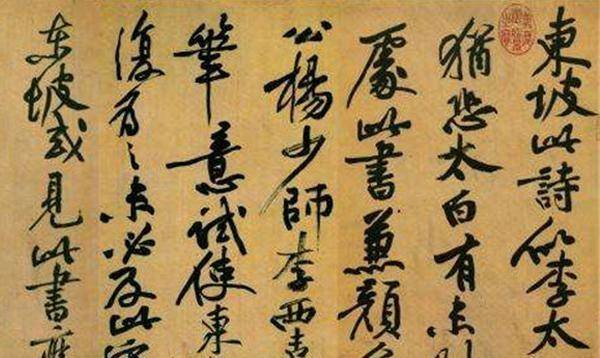 東坡此詩似李太
猶恐太白有未到
處此書兼顏
公楊少師李西臺
筆意試使東
復為之未必及此
東坡或見此書應